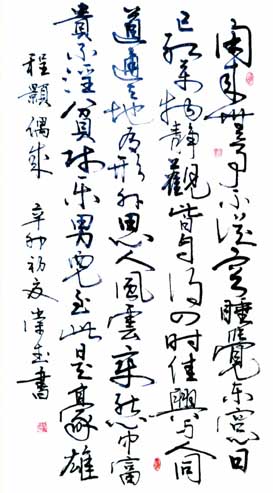 閑來無事不從容睡覺東窗日
已紅萬物靜觀皆自得四时佳興与人同
道通天地有形外思入風雲變態中富
貴不淫貧賤樂男兒到此是豪雄
程顥偶成 辛卯初夏 書